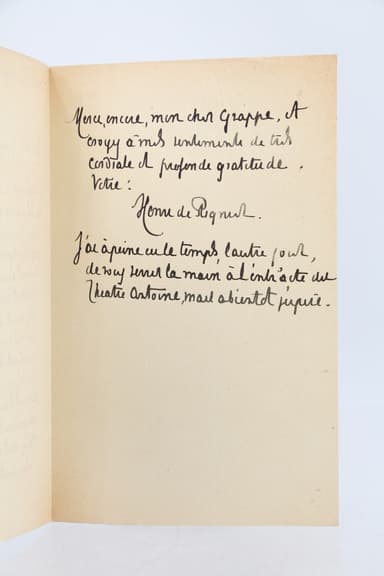 Merci, encore, mon cher Grappe, et
croyez à mes sentiments de très
cordiale et profonde gratitude.
Votre :
Henri de Régnier.
J'ai à peine eu le temps, l'autre jour,
de vous serrer la main à l'entr'acte du
Théâtre Antoine, mais à bientôt j'espère.